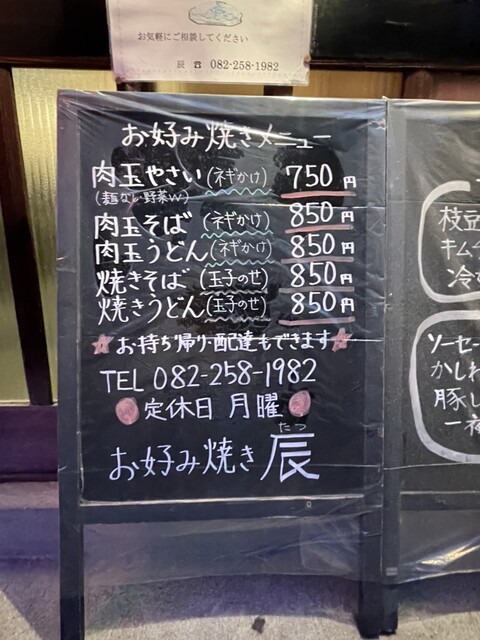 お気軽にご相談してください
辰 ☎ 082-258-1982
お好み焼きメニュー
肉玉やさい(ネギかけ) 750円
(麺なし野菜W)
肉玉そば(ネギかけ) 850円
肉玉うどん(ネギかけ) 850円
焼きそば(玉子のせ) 850円
焼きうどん(玉子のせ) 850円
★お持ち帰り・配達もできます★
TEL 082-258-1982
定休日 月曜
たつ
お好み焼き 辰
枝豆
キムチ
冷
ソーセー
かしわ
豚し
一夜